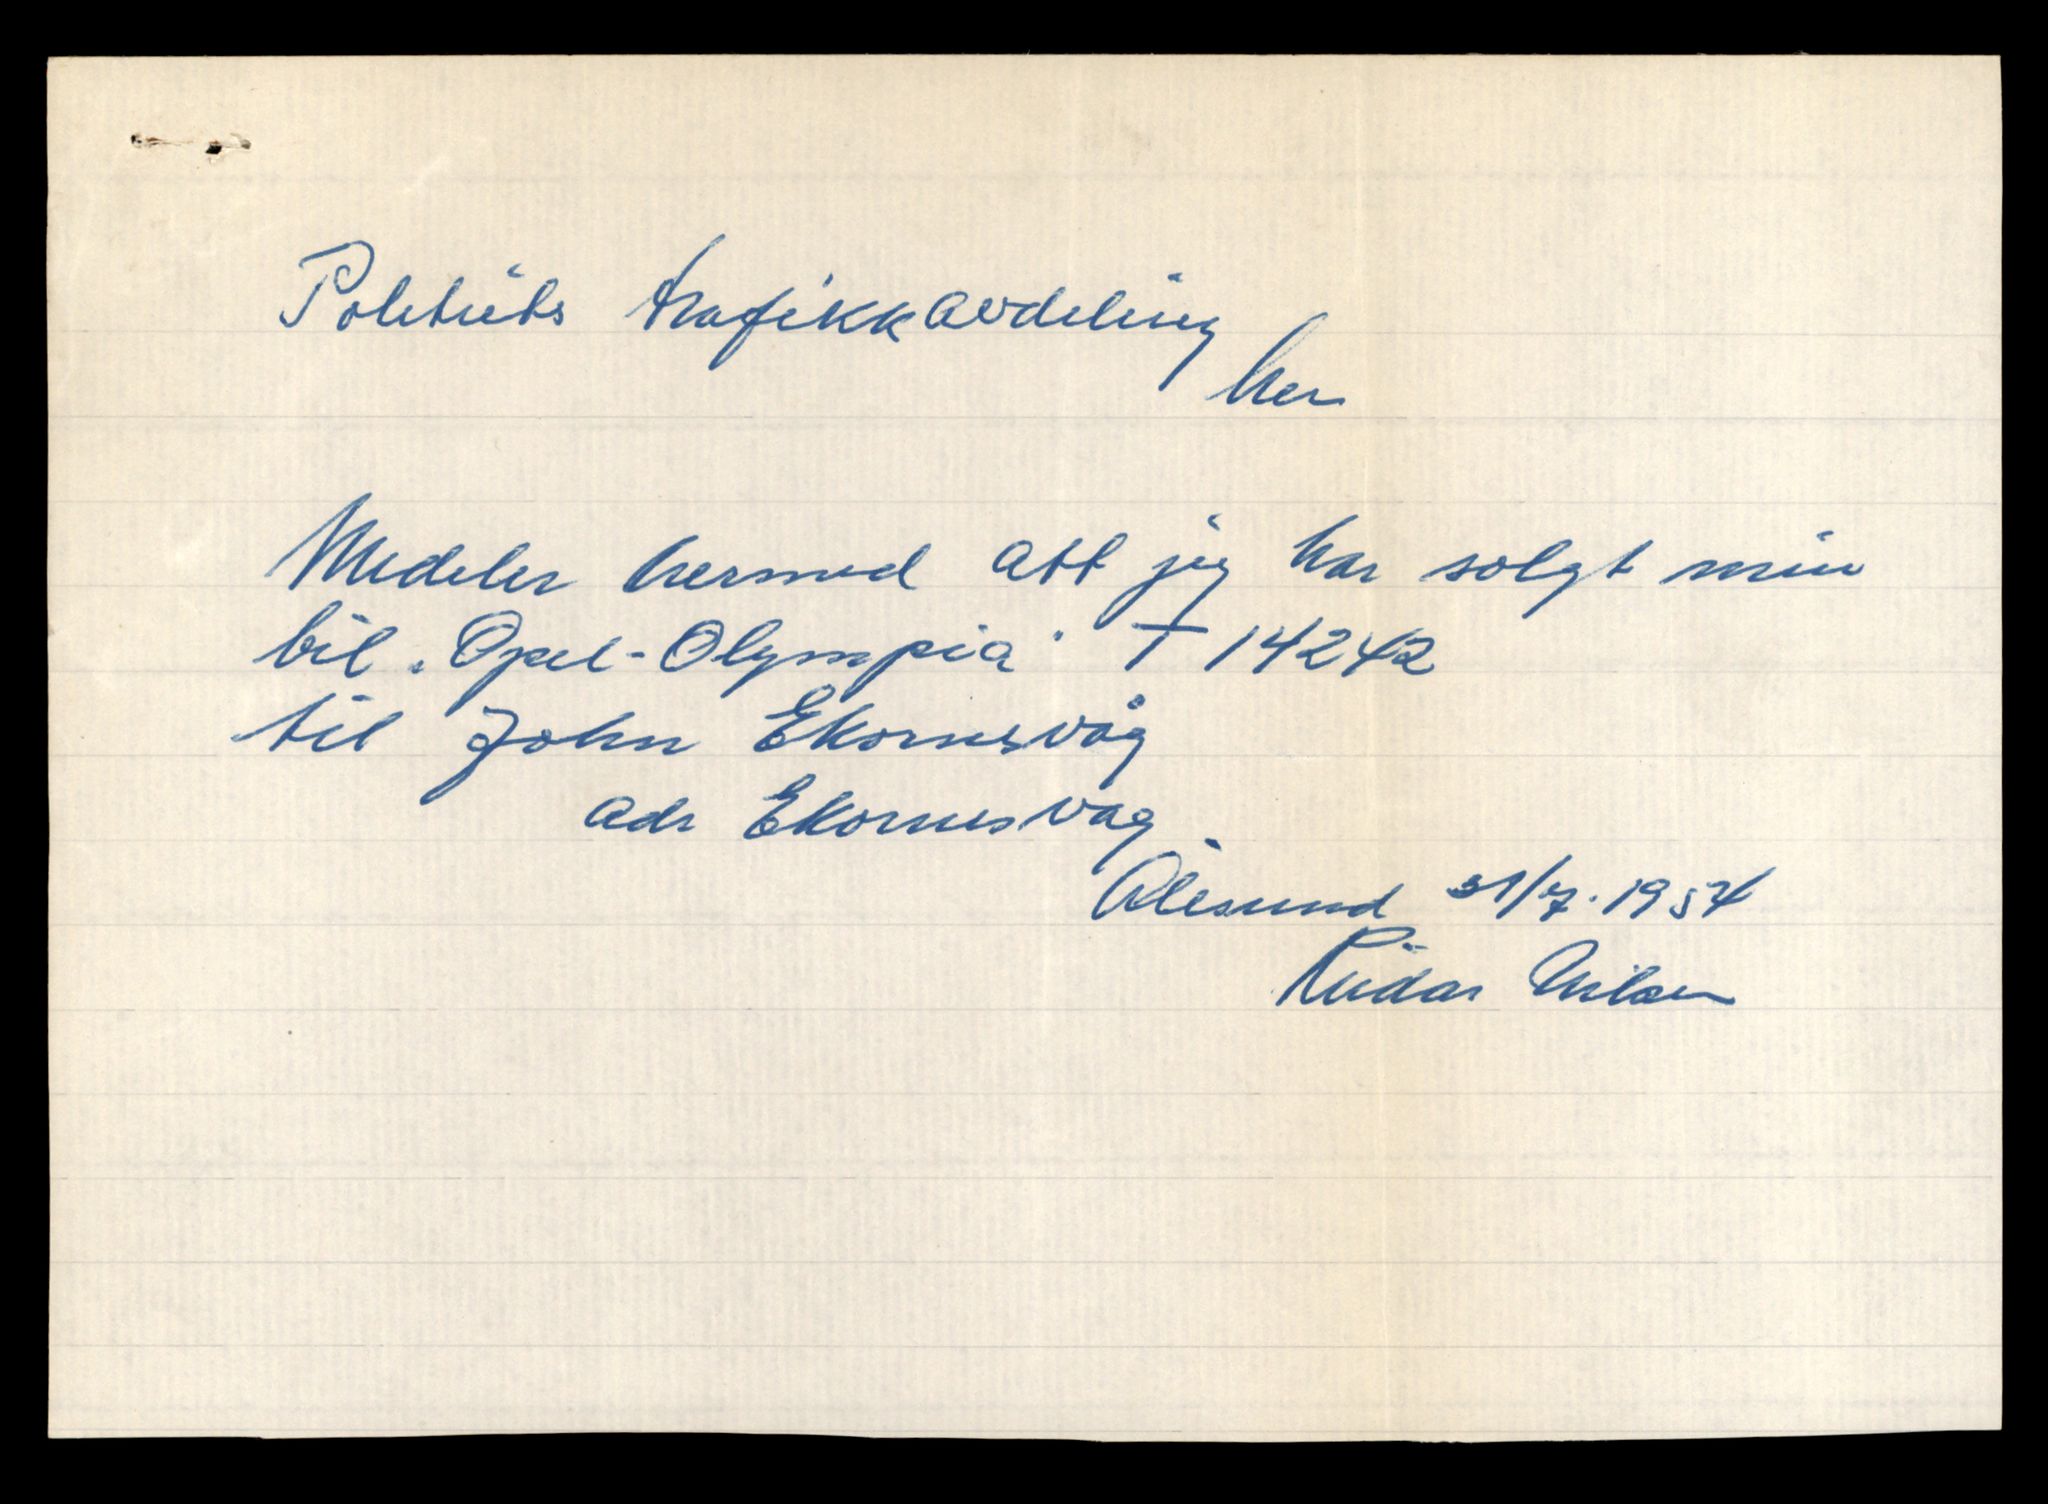 Politiets trafikkavdeling
her
Medeler hermed att jeg har solgt min
bil "Opel-Olympia" T 14242
til John Ekornesvåg
adr Ekornesvåg
Ålesund 31/7. 1954
Reidar Nilsen